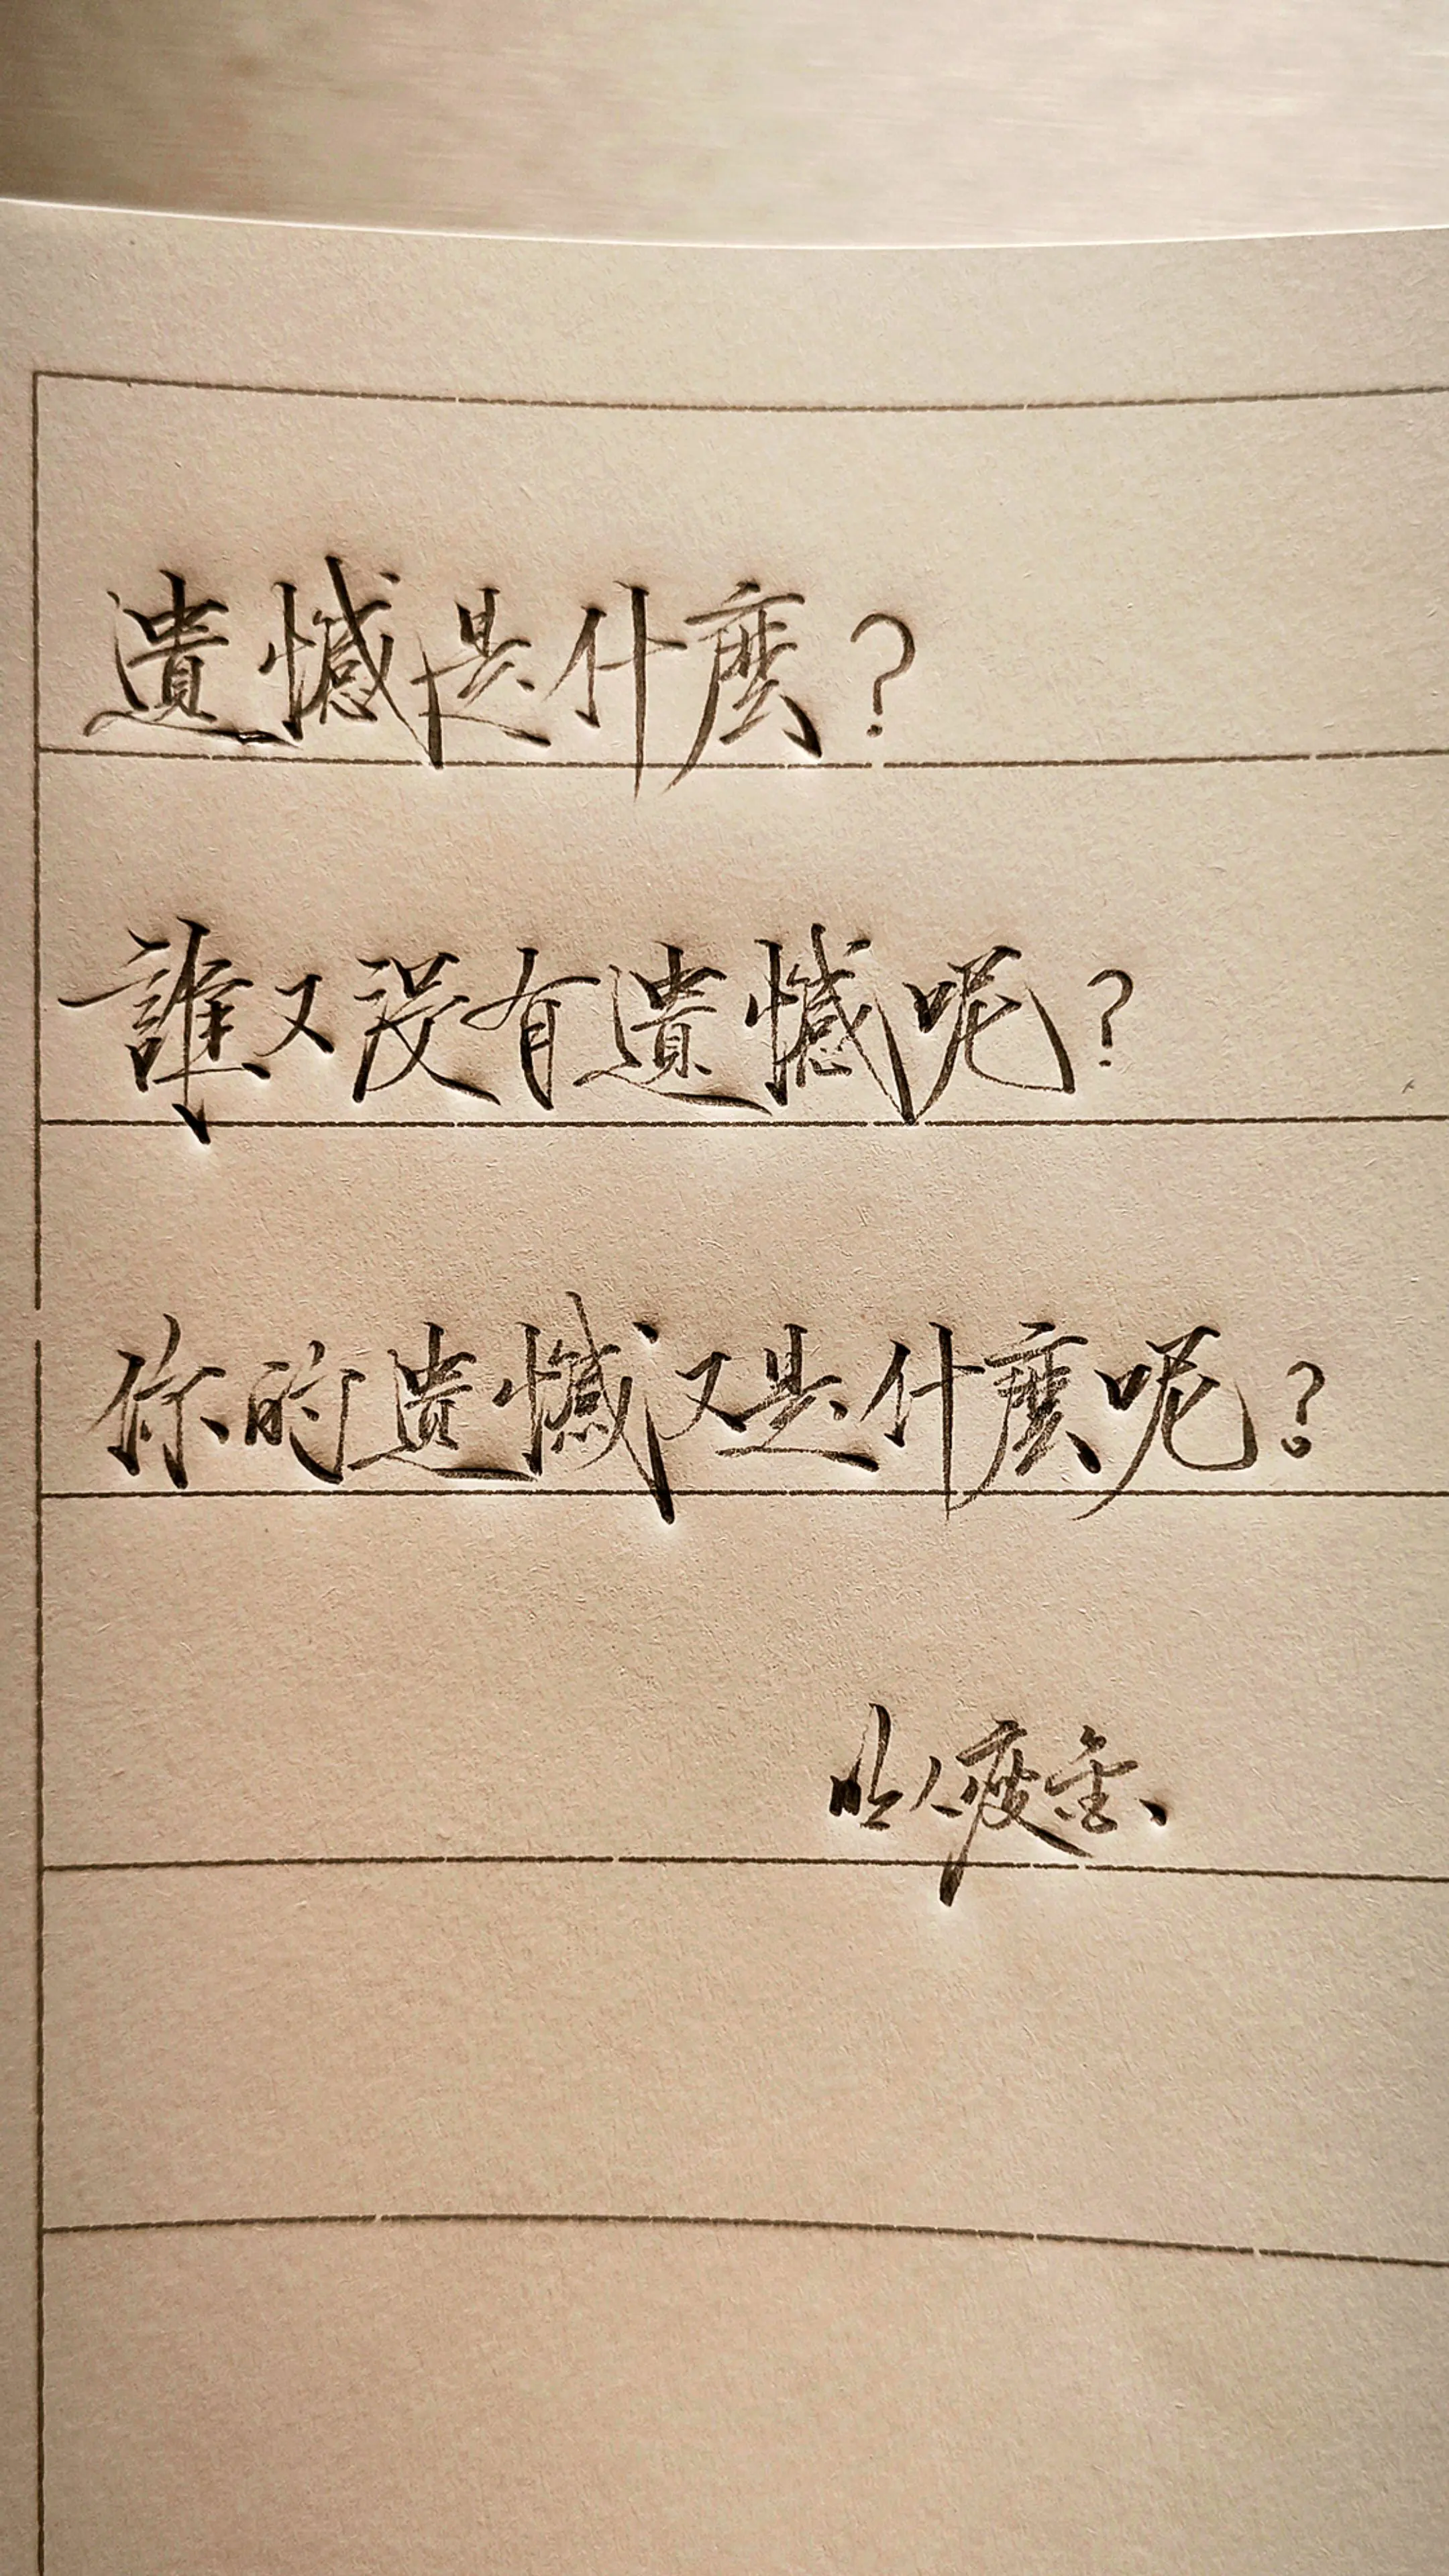 遺憾是什麼？
誰又没有遺憾呢？
你的遺憾又是什麼呢？